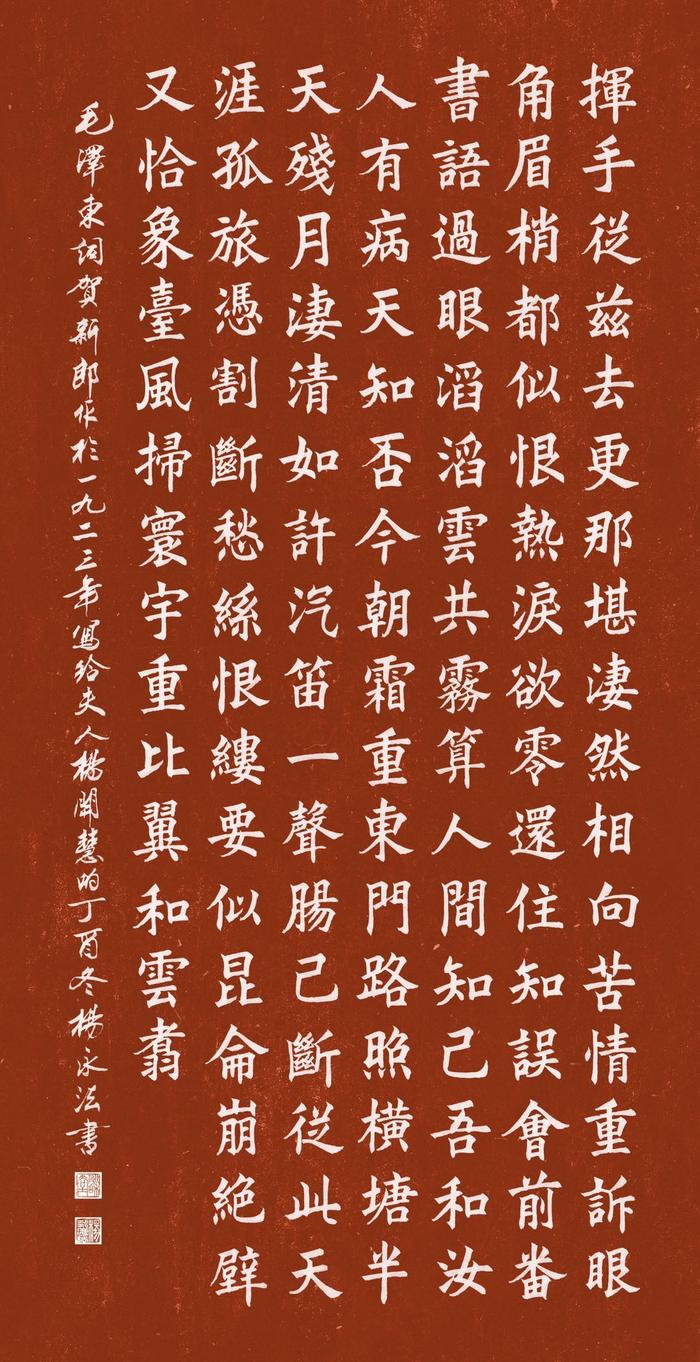 揮手從兹去更那堪淒然相向苦情重訴眼
角眉梢都似恨熱淚欲零還住知誤會前番
書語過眼滔滔雲共霧算人間知己吾和汝
人有病天知否今朝霜重東門路照橫塘半
天殘月淒清如許汽笛一聲腸已斷從此天
涯孤旅憑割斷愁絲恨縷要似昆侖崩絕壁
又恰象臺風掃寰宇重比翼和雲翥
毛澤東詞賀新郎作於一九二三年寫給夫人楊開慧的丁酉冬楊永法書